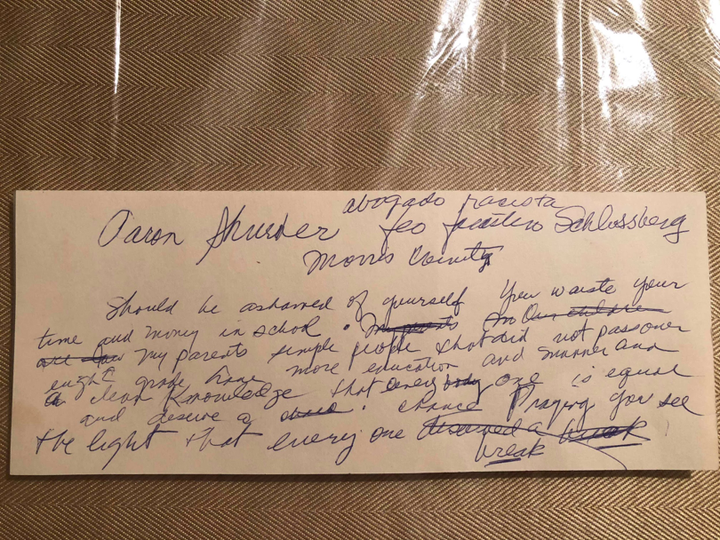 abogado racista
Aaron feo Schlossberg
Morris County
Should be ashamed of yourself You waste your
time and money in school. My parents In Our children
my parents simple people that did not passover
eight grade have more education and manner and
a clean Knowledge that every body one is equal
and deserve a chance Praying you see
the light that every one deserved a break
break